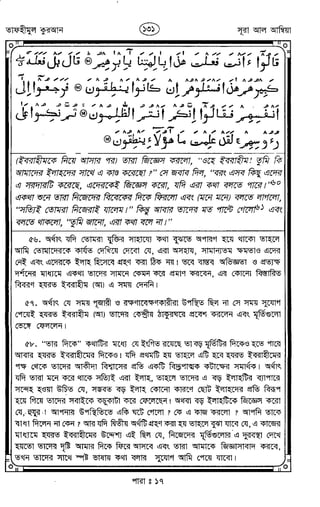 তাফহীমুল কুরআন ১৩১ সূরা আল আম্বিয়া
قَالُوٓا ءَاَنْتَ فَعَلْتَ هٰذَا بِاٰلِهَتِنَا يٰٓاِبْرٰهِيْمُ ۞ قَالَ بَلْ فَعَلَهٗ ۖ
كَبِيْرُهُمْ هٰذَا فَسْـَٔلُوْهُمْ اِنْ كَانُوْا يَنْطِقُوْنَ ۞ فَرَجَعُوٓا اِلٰٓى
اَنْفُسِهِمْ فَقَالُوٓا اِنَّكُمْ اَنْتُمُ الظّٰلِمُوْنَ ۞ ثُمَّ نُكِسُوْا عَلٰى
رُءُوْسِهِمْ ۚ لَقَدْ عَلِمْتَ مَا هٰٓؤُلَآءِ يَنْطِقُوْنَ ۞
(ইবরাহীমকে নিয়ে আসার পর) তারা জিজ্ঞেস করলো, "ওহে ইবরাহীম! তুমি কি
আমাদের ইলাহদের সাথে এ কাণ্ড করেছো?" সে জবাব দিল, "বরং এসব কিছু এদের
এ সরদারটি করেছে, এদেরকেই জিজ্ঞেস করো, যদি এরা কথা বলতে পারে।"
একথা শুনে তারা নিজেদের বিবেকের দিকে ফিরলো এবং (মনে মনে) বলতে লাগলো,
"সত্যিই তোমরা নিজেরাই যালেম।" কিন্তু আবার তাদের মত পাল্টে গেলো এবং
বলতে থাকলো, "তুমি জানো, এরা কথা বলে না।"
৫৬. অর্থাৎ যদি তোমরা যুক্তির সাহায্যে কথা বুঝতে অপারগ হয়ে থাকো তাহলে
আমি তোমাদেরকে কার্যত দেখিয়ে দেবো যে, এরা অসহায়, সামান্যতম ক্ষমতাও এদের
নেই এবং এদেরকে ইলাহ হিসেবে গ্রহণ করা ঠিক নয়। তবে বাস্তব অভিজ্ঞতা ও প্রত্যক্ষ
দর্শনের মাধ্যমে একথা তাদের সামনে কেমন করে প্রমাণ করবেন, এর কোনো বিস্তারিত
বিবরণ হযরত ইবরাহীম (আ) এ সময় দেননি।
৫৭. অর্থাৎ যে সময় পূজারী ও রক্ষণাবেক্ষণকারীরা উপস্থিত ছিল না সে সময় সুযোগ
পেয়েই হযরত ইবরাহীম (আ) তাদের কেন্দ্রীয় ঠাকুরঘরে প্রবেশ করলেন এবং মূর্তিগুলো
ভেঙ্গে ফেললেন।
৫৮. "তার দিকে" কথাটির মধ্যে যে ইংগিত রয়েছে তা বড় মূর্তিটির দিকেও হতে পারে
আবার হযরত ইবরাহীমের দিকেও। যদি প্রথমটি হয় তাহলে এটি হবে হযরত ইবরাহীমের
পক্ষ থেকে তাদের আকীদা বিশ্বাসের প্রতি একটি বিদ্রূপাত্মক কটাক্ষের সমার্থক। অর্থাৎ
যদি তারা মনে করে থাকে সত্যিই এরা ইলাহ, তাহলে তাদের এ বড় ইলাহটির ব্যাপারে
সন্দেহ হওয়া উচিত যে, সম্ভবত বড় ইলাহ কোনো কারণে ছোট ইলাহদের প্রতি বিরূপ
হয়ে গিয়ে তাদের সবাইকে কচুকাটা করে ফেলেছেন। অথবা বড় ইলাহটিকে জিজ্ঞেস করো
যে, হুযুর! আপনার উপস্থিতিতে একি ঘটে গেলো? কে এ কাজ করলো? আপনি তাকে
বাধা দিলেন না কেন? আর যদি দ্বিতীয় অর্থটি গ্রহণ করা হয় তাহলে বুঝা যাবে যে, এ কাজের
মাধ্যমে হযরত ইবরাহীমের উদ্দেশ্য এই ছিল যে, নিজেদের মূর্তিগুলোর এ দুরবস্থা দেখে
হয়তো তাদের দৃষ্টি আমার দিকে ফিরে আসবে এবং তারা আমাকে জিজ্ঞাসাবাদ করবে,
তখন তাদের সাথে স্পষ্ট ভাষায় কথা বলার সুযোগ আমি পেয়ে যাবো।
পারা : ১৭